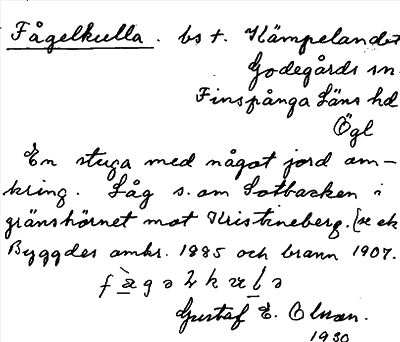 Fågelkulla. bs t. Kämpelandet
Godegårds sn
Finspånga läns hd
Ögl
En stuga med något jord om-
kring. Låg s. om Sotbacken i
gränshörnet mot Kristineberg. [se ek
Byggdes omkr. 1885 och brann 1907.
Gustaf E. Olsson.
1930